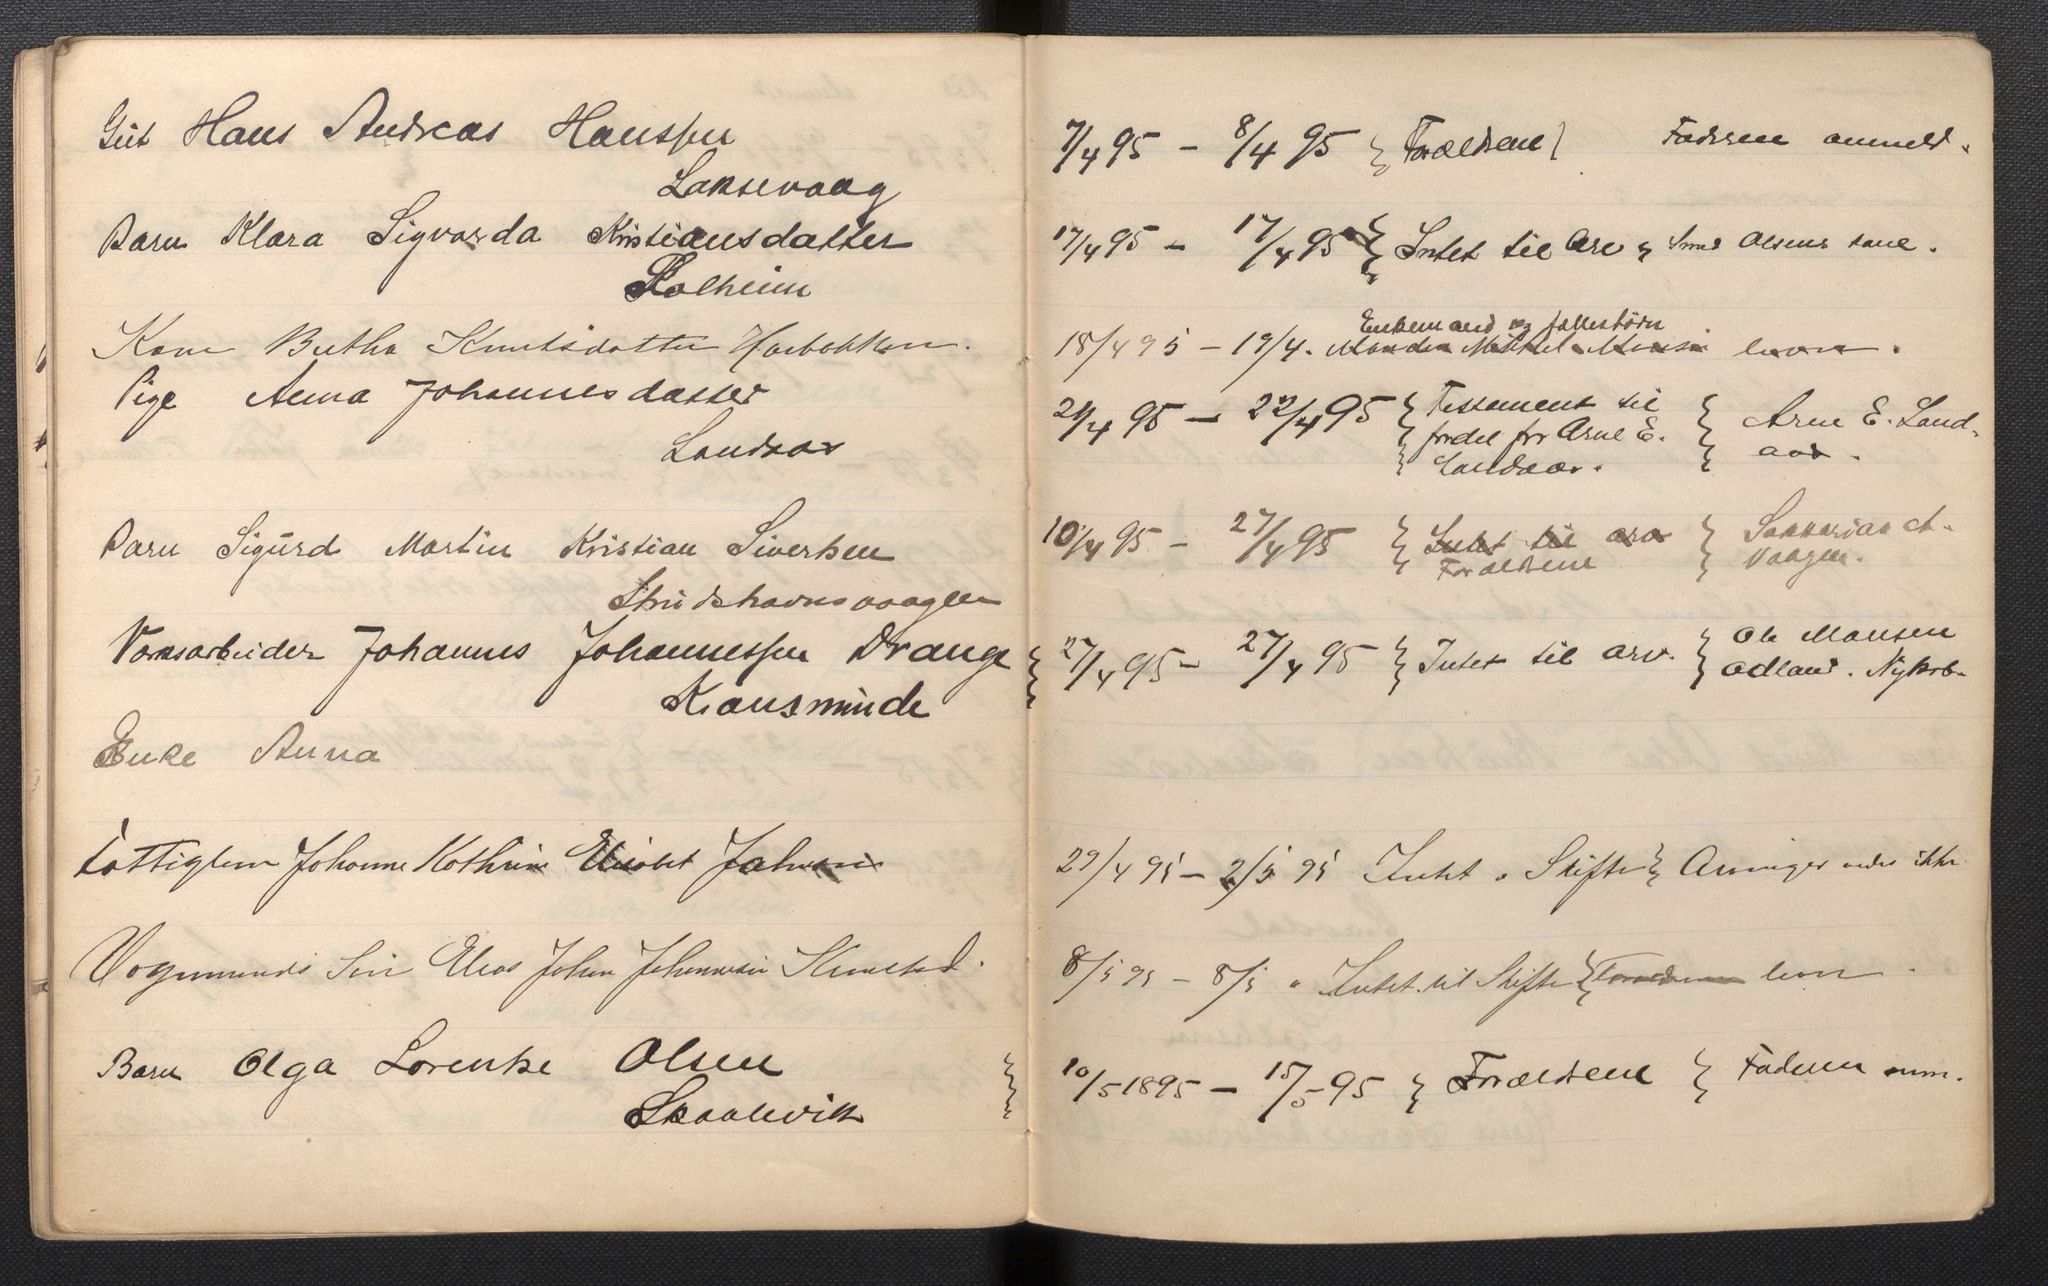 Gut Hans Andreas Hanssen
Laksevaag
Barn Klara Sigvarda Kristiansdatter
Solheim
Kone Bertha Knutsdatter
Pige Anna Johannesdatter
Landaas
Barn Sigurd Martin Kristian Sivertsen
Strudshavnsvaagen
Værksarbeider Johannes Johannessen Drange
Kransminde
Enke Anna
Fattiglem Johanne Kathrine Elisabet
Søn Elias Johan Johannesen
Barn Olga Lorentse Olsen
Skaalevik
7/4 95 - 8/4 95 } Forældrene } Faderen anmeld.
17/4 95 - 17/4 95 } Intet til Arv } Olsens
Enkemand og fællesbørn
18/4 95 - 19/4.
21/4 95 - 22/4 95 } Testament til } Arne E. Land-
fordel for Arne E. aas.
Landaas.
10/4 95 - 27/4 95 } Intet til arv }
Forældrene Vaagen.
27/4 95 - 27/4 95 } Intet til arv. } Ole Monsen
Ødland. Nykrb.
29/4 95 - 2/5 95 Intet Skifte } Arvinger ikke
8/5 95 - 8/5 " Intet til Skifte } Forældrene
10/5 1895 - 15/5 95 } Forældrene } Faderen anm.